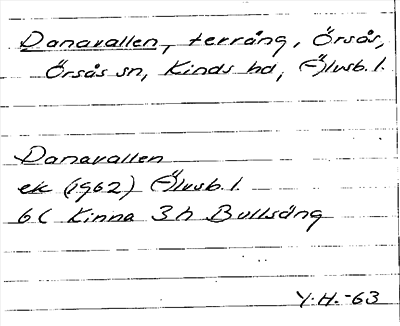 Danavallen, terräng, Örsås,
Örsås sn, Kinds hd, Älvsb. l.
Danavallen
ek (1962) Älvsb. l.
6C Kinna 3h Bullsäng
Y.H.-63